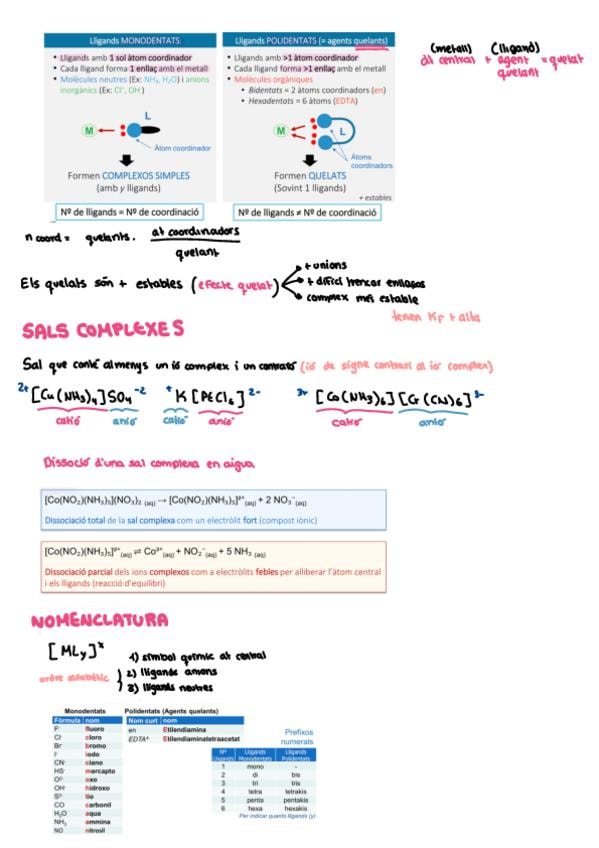 Lligands MONODENTATS:
• Lligands amb 1 sol àtom coordinador
• Cada lligand forma 1 enllaç amb el metall
• Molècules neutres (Ex: NH₃, H₂O) i anions inorgànics (Ex: Cl⁻, OH⁻)
L
M
Àtom coordinador
Formen COMPLEXOS SIMPLES
(amb y lligands)
Nº de lligands = Nº de coordinació
Lligands POLIDENTATS (= agents quelants)
• Lligands amb >1 àtom coordinador
• Cada lligand forma >1 enllaç amb el metall
• Molècules orgàniques
• Bidentats = 2 àtoms coordinadors (en)
• Hexadentats = 6 àtoms (EDTA)
M
L
Àtoms coordinadors
Formen QUELATS
(Sovint 1 lligands)
+ estables
Nº de lligands ≠ Nº de coordinació
(metall) (lligand)
at central + agent quelant = quelat
n coord = quelants . at coordinadors / quelant
Els quelats són + estables (efecte quelat)
+ unions
+ difícil trencar enllaços
complex més estable
tenen Kf + alta
SALS COMPLEXES
Sal que conté almenys un ió complex i un contraió (ió de signe contrari al ió complex)
2+ [Cu(NH₃)₄]SO₄ -2 + K[PtCl₆] 2- 3+ [Co(NH₃)₆][Cr(CN)₆] 3-
catió anió catió anió catió anió
Dissoció d'una sal complexa en aigua
[Co(NO₂)(NH₃)₅](NO₃)₂ (aq) → [Co(NO₂)(NH₃)₅]²⁺(aq) + 2 NO₃⁻(aq)
Dissociació total de la sal complexa com un electròlit fort (compost iònic)
[Co(NO₂)(NH₃)₅]²⁺(aq) ⇌ Co³⁺(aq) + NO₂⁻(aq) + 5 NH₃ (aq)
Dissociació parcial dels ions complexos com a electròlits febles per alliberar l'àtom central
i els lligands (reacció d'equilibri)
NOMENCLATURA
[MLy]ˣ
1) símbol químic at central
ordre alfabètic
2) lligands anions
3) lligands neutres
Monodentats
Fórmula nom
F⁻ fluoro
Cl⁻ cloro
Br⁻ bromo
I⁻ iodo
CN⁻ ciano
HS⁻ mercapto
O²⁻ oxo
OH⁻ hidroxo
S²⁻ tio
CO carbonil
H₂O aqua
NH₃ ammina
NO nitrosil
Polidentats (Agents quelants)
Nom curt nom
en Etilendiamina
EDTA⁴⁻ Etilendiaminatetraacetat
Prefixos
numerals
Nº Lligands Lligands Monodentats Lligands Polidentats
1 mono -
2 di bis
3 tri tris
4 tetra tetrakis
5 penta pentakis
6 hexa hexakis
Per indicar quants lligands (y)